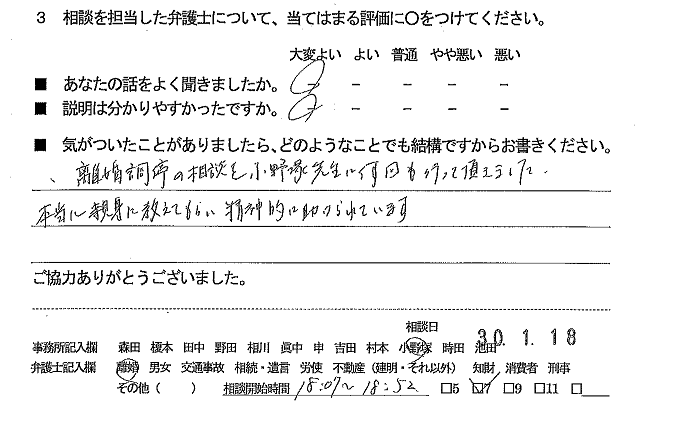 3 相談を担当した弁護士について、当てはまる評価に〇をつけてください。
大変よい よい 普通 やや悪い 悪い
■ あなたの話をよく聞きましたか。 － － － － －
■ 説明は分かりやすかったですか。 － － － － －
■ 気がついたことがありましたら、どのようなことでも結構ですからお書きください。
離婚調停の相談を小野塚先生に何回も行って頂きました。
本当に親身に教えてもらい精神的に助けられています
ご協力ありがとうございました。
相談日 30.1.18
事務所記入欄 森田 榎本 田中 野田 相川 眞中 申 吉田 村本 小野塚 時田 池田
弁護士記入欄 離婚 男女 交通事故 相続・遺言 労使 不動産（建明・それ以外） 知財 消費者 刑事
その他（ ） 相談開始時間 18:07～18:52 □5 ☑7 □9 □11 □